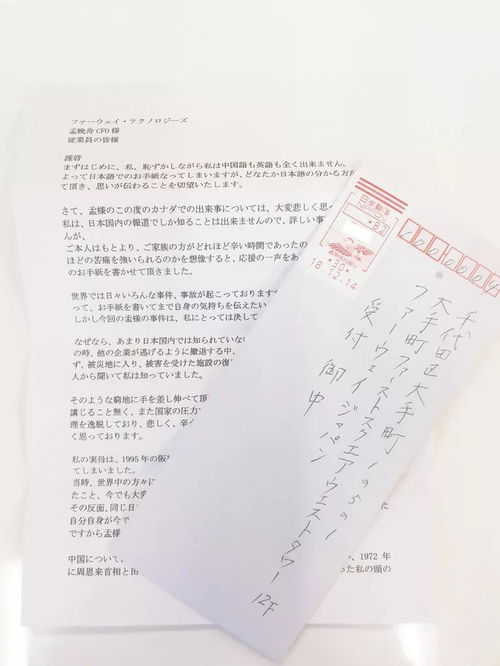 ファーウェイ・テクノロジーズ
孟晩舟 CFO 様
従業員の皆様
謹啓
まずはじめに、私、恥ずかしながら私は中国語も英語も全く出来ません。
よって日本語でのお手紙なってしまいますが、どなたか日本語の分かる方が
て頂き、思いが伝わることを切望いたします。
さて、孟様のこの度のカナダでの出来事については、大変悲しく思
私は、日本国内の報道でしか知ることは出来ませんので、詳しい事
んが、
ご本人はもとより、ご家族の方がどれほど辛い時間であったの
ほどの苦痛を強いられるのかを想像すると、応援の一声をあ
のお手紙を書かせて頂きました。
世界では日々いろんな事件、事故が起こっております
って、お手紙を書いてまで自身の気持ちを伝えたい
しかし今回の孟様の事件は、私にとっては決して
なぜなら、あまり日本国内では知られていな
の時、他の企業が逃げるように撤退する中、
ず、被災地に入り、被害を受けた施設の復
人から聞いて私は知っていました。
そのような窮地に手を差し伸べて頂
講じること無く、また国家の圧力
理を逸脱しており、悲しく、辛く
く思っております。
私の実母は、1995 年の阪
てしまいました。
当時、世界中の方々に
たこと、今でも大変
その反面、同じ日
自分自身が今で
ですから孟様
に
中国について、
、1972 年
に周恩来首相と田
った私の頭の
日本郵便
*82
*30*
18.12.14
1000004
千代田区大手町1の5の1
大手町ファーストスクエアウエストタワー12F
ファーウェイジャパン
受付 御中